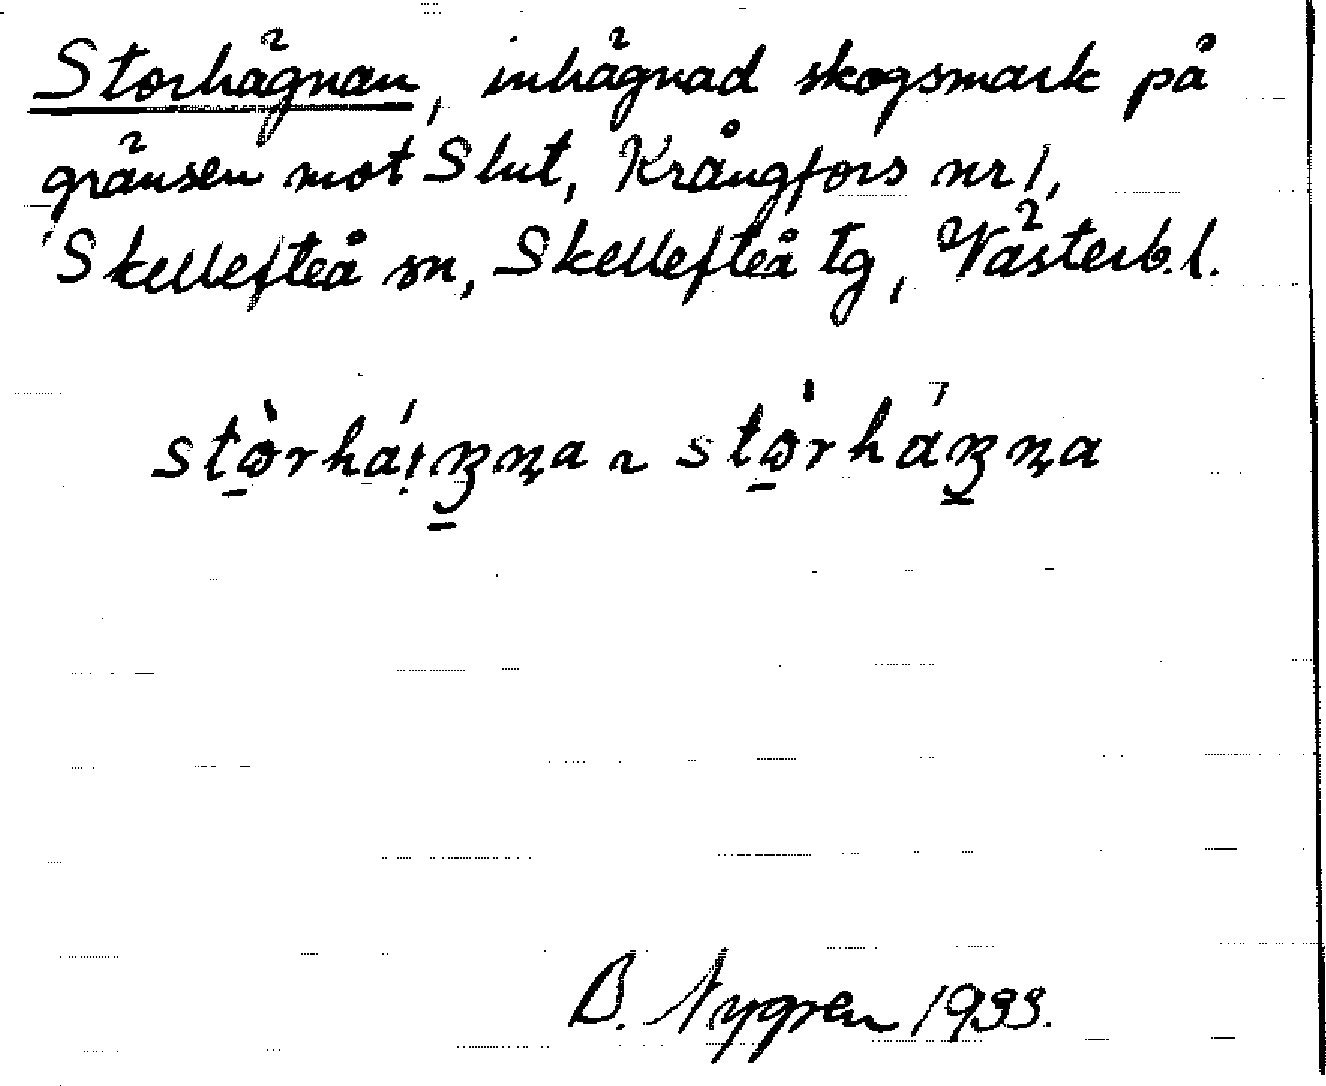 Storhägnan, inhägnad skogsmark på
gränsen mot Slut, Krångfors nr 1,
Skellefteå sn, Skellefteå tg, Västerb. l.
B. Nygren 1933.